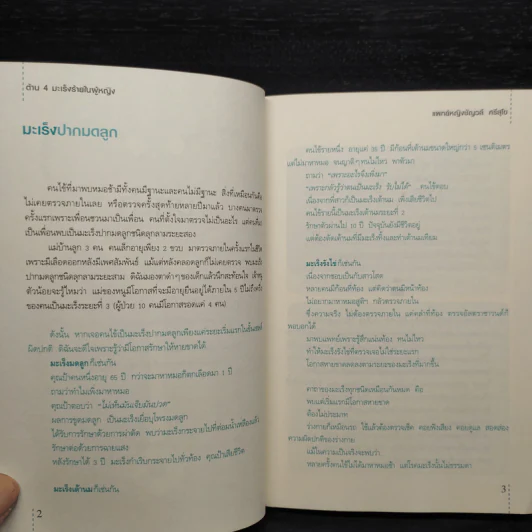 ต้าน 4 มะเร็งร้ายในผู้หญิง
มะเร็งปากมดลูก
คนไข้ที่มาพบหมอช้ามีทั้งคนมีฐานะและคนไม่มีฐานะ สิ่งที่เหมือนกันคือ
ไม่เคยตรวจภายในเลย หรือตรวจครั้งสุดท้ายหลายปีมาแล้ว บางคนมาตรวจ
ครั้งแรกเพราะเพื่อนชวนมาเป็นเพื่อน คนที่ตั้งใจมาตรวจไม่เป็นอะไร แต่คนที่มา
เป็นเพื่อนพบเป็นมะเร็งปากมดลูกชนิดลุกลามระยะสอง
แม่บ้านลูก 3 คน คนเล็กอายุเพียง 2 ขวบ มาตรวจภายในครั้งแรกในชีวิต
เพราะมีเลือดออกหลังมีเพศสัมพันธ์ แม้แต่หลังคลอดลูกก็ไม่เคยตรวจ พบมะเร็ง
ปากมดลูกชนิดลุกลามระยะสาม ดิฉันมองตาดำๆ ของเด็กแล้วนึกสะท้อนใจ เจ้าหนู
ตัวน้อยจะรู้ไหมว่า แม่ของหนูมีโอกาสที่จะมีอายุยืนอยู่ได้ภายใน 5 ปีไม่ถึงครึ่ง
ของคนเป็นมะเร็งระยะที่ 3 (ผู้ป่วย 10 คนมีโอกาสรอดแค่ 4 คน)
ดังนั้น หากเจอคนไข้เป็นมะเร็งปากมดลูกเพียงแค่ระยะเริ่มแรกในชั้นเซลล์
ผิดปกติ ดิฉันจะดีใจเพราะรู้ว่ามีโอกาสรักษาให้หายขาดได้
มะเร็งมดลูกก็เช่นกัน
คุณป้าคนหนึ่งอายุ 65 ปี กว่าจะมาหาหมอก็ตกเลือดมา 1 ปี
ถามว่าทำไมเพิ่งมาหาหมอ
คุณป้าตอบว่า "ไม่เห็นมันเจ็บมันปวด"
ผลการขูดมดลูก เป็นมะเร็งเยื่อบุโพรงมดลูก
ได้รับการรักษาด้วยการผ่าตัด พบว่ามะเร็งกระจายไปที่ต่อมน้ำเหลืองแล้ว
รักษาต่อด้วยการฉายแสง
หลังรักษาได้ 3 ปี มะเร็งกำเริบกระจายไปทั่วท้อง คุณป้าเสียชีวิต
มะเร็งเต้านมก็เช่นกัน
2
แพทย์หญิงชัญวลี ศรีสุโข
คนไข้รายหนึ่ง อายุแค่ 35 ปี มีก้อนที่เต้านมขนาดใหญ่กว่า 5 เซนติเมตร
แต่ไม่มาหาหมอ จนญาติๆ ทนไม่ไหว พาตัวมา
ถามว่า "เพราะอะไรจึงเพิ่งมา"
"เพราะกลัวรู้ว่าตนเป็นมะเร็ง รับไม่ได้" ...คนไข้ตอบ
เนื่องจากพี่สาวก็เป็นมะเร็งเต้านม เพิ่งเสียชีวิตไป
คนไข้รายนี้เป็นมะเร็งเต้านมระยะที่ 3
รักษาตัวผ่านไป 10 ปี ปัจจุบันยังมีชีวิตอยู่
แต่ต้องตัดเต้านมที่มีมะเร็งทิ้งและทำเต้านมเทียม
มะเร็งรังไข่ก็เช่นกัน
เนื่องจากชอบเป็นกับสาวโสด
หลายคนมีก้อนที่ท้อง แต่คิดว่าตนมีหน้าท้อง
ไม่อยากมาหาหมอสูติฯ กลัวตรวจภายใน
ซึ่งความจริง ไม่ต้องตรวจภายใน แค่คลำที่ท้อง ตรวจอัลตราซาวนด์ก็
พอบอกได้
มาพบแพทย์เพราะรู้สึกแน่นท้อง ทนไม่ไหว
ทำให้มะเร็งรังไข่ที่ตรวจเจอไม่ใช่ระยะแรก
โอกาสหายขาดลดลงตามระยะของมะเร็งที่มากขึ้น
คาถาของมะเร็งทุกชนิดเหมือนกันหมด คือ
พบแต่เริ่มแรกมีโอกาสหายขาด
ต้องไม่ประมาท
ร่างกายก็เหมือนรถ ใช้แล้วต้องตรวจเช็ค คอยฟังเสียง คอยดูแล สอดส่อง
ความผิดปกติของร่างกาย
แม้ในความเป็นจริงจะพบว่า
หลายครั้งคนไข้ไม่ได้มาหาหมอช้า แต่โรคมะเร็งนั้นไม่ธรรมดา
3